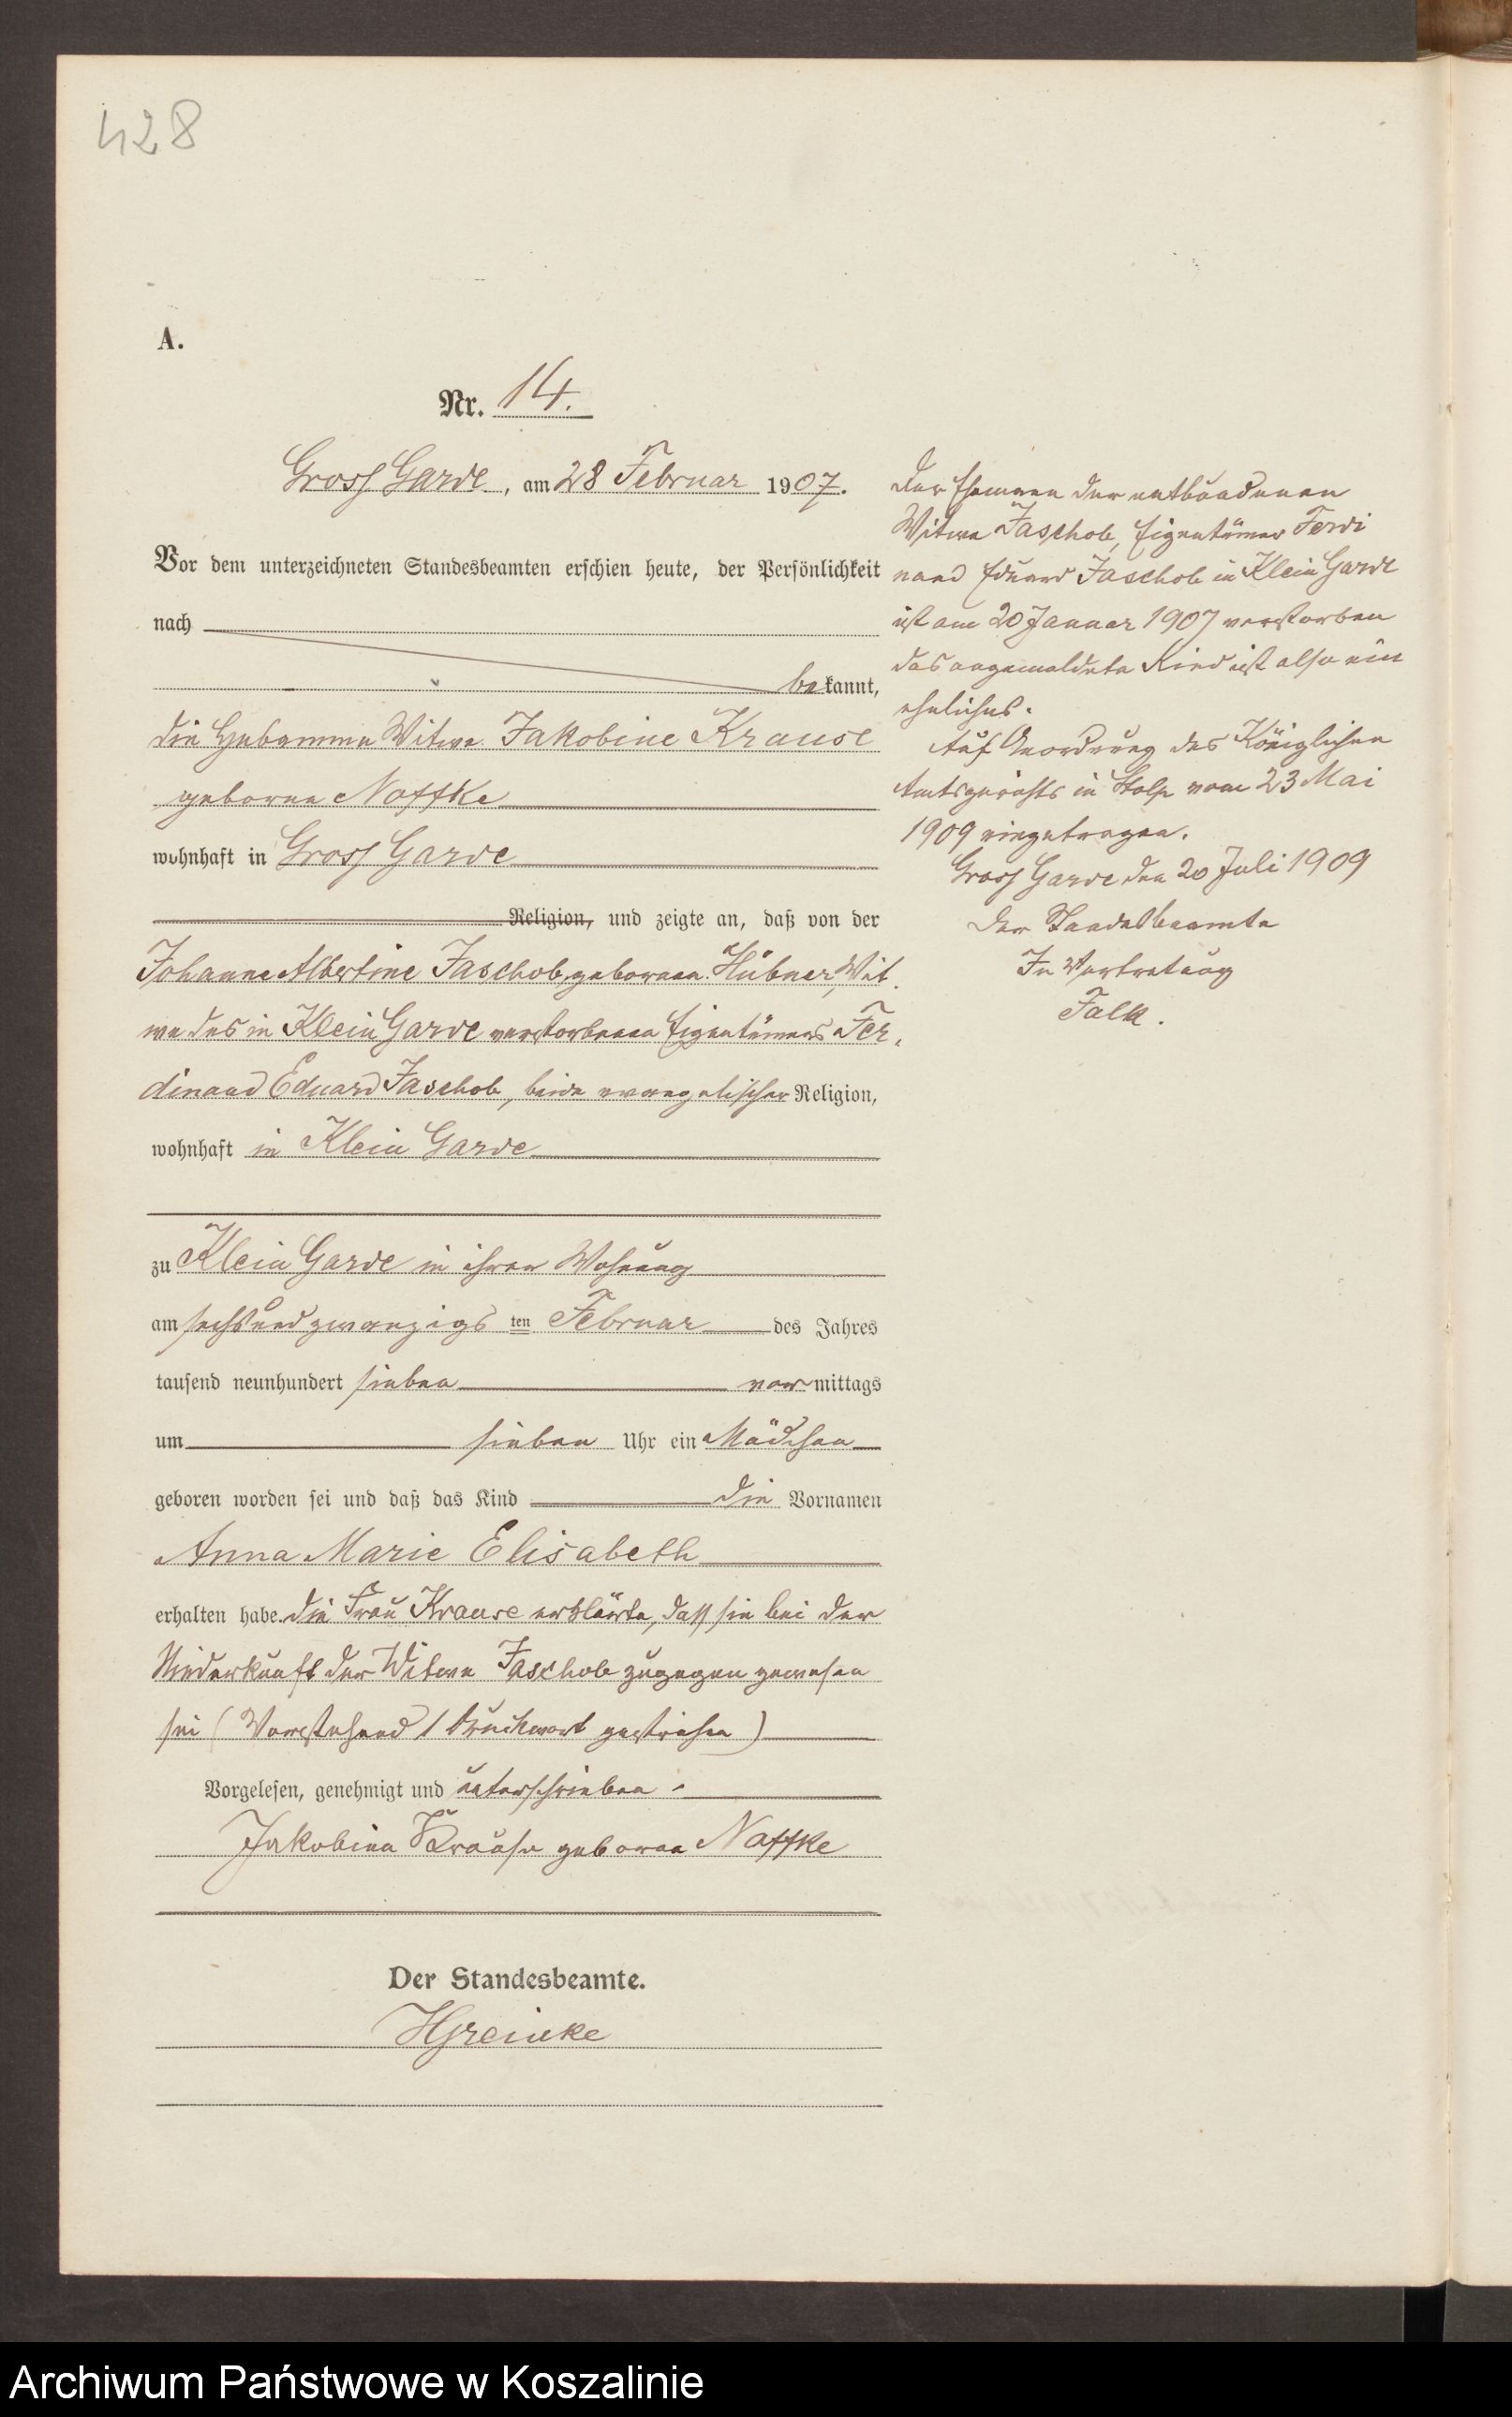 428
A.
Nr. 14.
Gross Garde, am 28 Februar 1907.
Vor dem unterzeichneten Standesbeamten erschien heute, der Persönlichkeit
nach
bekannt,
die Hebamme Witwe Jakobine Krause
geborne Noffke
wohnhaft in Gross Garde
Religion, und zeigte an, daß von der
Johanne Albertine Jaschob, gebornen Hübner, Wit
we des in Klein Garde verstorbenen Eigentümers Fer
dinand Eduard Jaschob, beide evangelischer Religion,
wohnhaft in Klein Garde
zu Klein Garde in ihrer Wohnung
am sechsundzwanzigsten Februar des Jahres
tausend neunhundert sieben vormittags
um sieben Uhr ein Mädchen
geboren worden sei und daß das Kind die Vornamen
Anna Marie Elisabeth
erhalten habe. Die Frau Krause erklärte, dass sie bei der
Niederkunft der Witwe Jaschob zugegen gewesen
sei (Vorstehend 1 Druckwort gestrichen)
Vorgelesen, genehmigt und unterschrieben.
Jakobine Krause geborne Noffke
Der Standesbeamte.
HGreinke
Der Ehemann der entbundenen
Witwe Jaschob, Eigentümer Ferdi
nand Eduard Jaschob in Klein Garde
ist am 20 Januar 1907 verstorben
das angemeldete Kind ist also ein
eheliches.
Auf Anordnung des Königlichen
Amtsgerichts in Stolp vom 23 Mai
1909 eingetragen.
Gross Garde den 20 Juli 1909
Der Standesbeamte
In Vertretung
Falk.
Archiwum Państwowe w Koszalinie